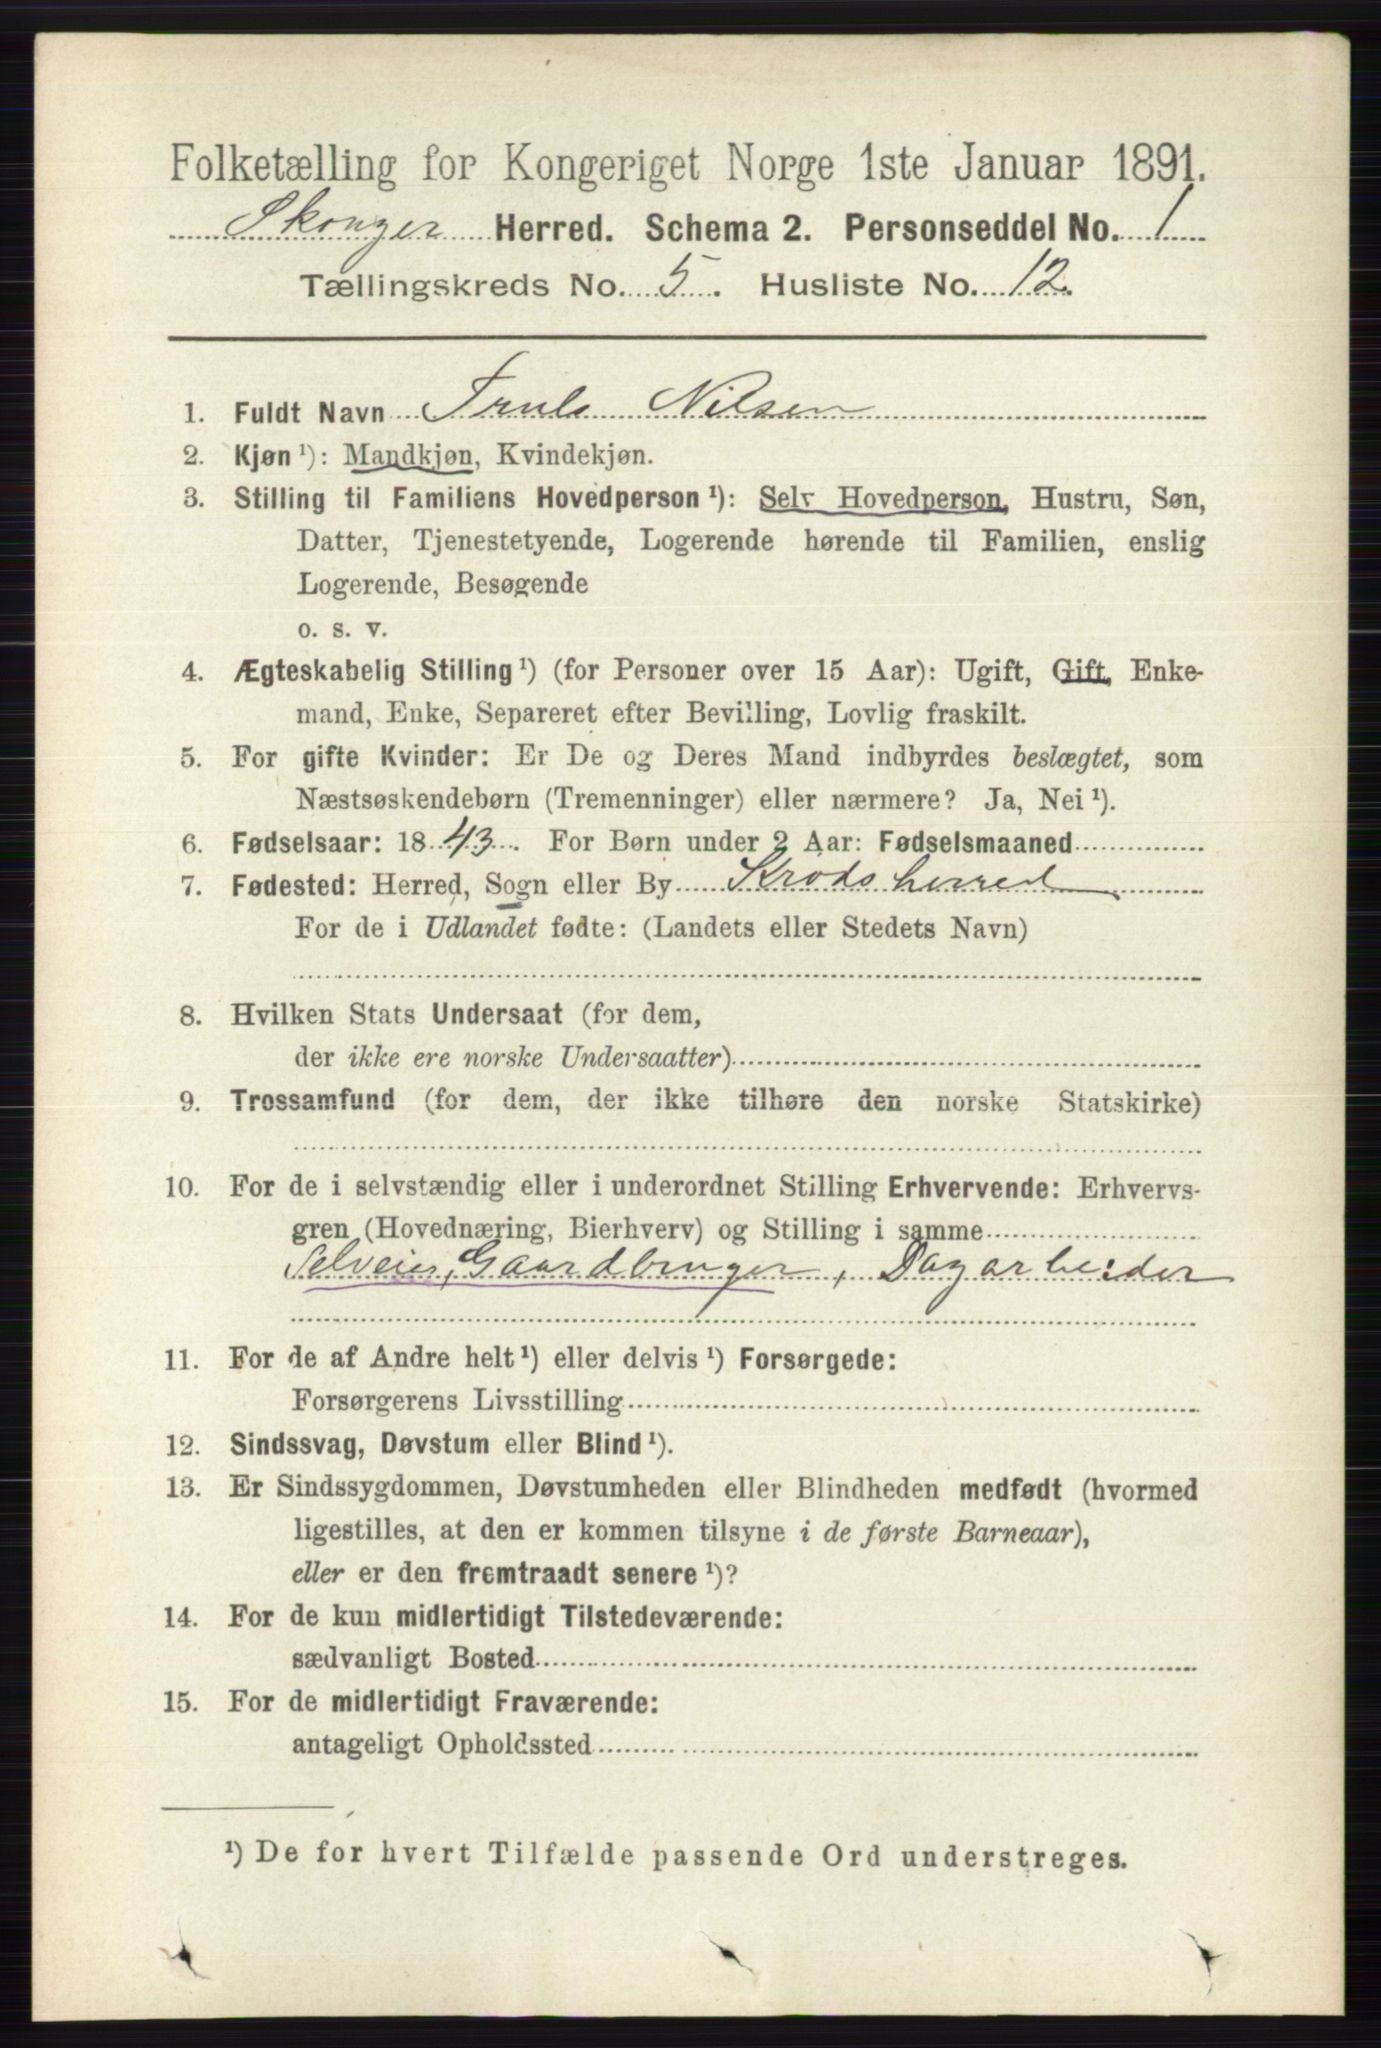 Folketælling for Kongeriget Norge 1ste Januar 1891.
Skouger Herred. Schema 2. Personseddel No. 1
Tællingskreds No. 5. Husliste No. 12.
1. Fuldt Navn Truls Nilsen
2. Kjøn ¹): Mandkjøn, Kvindekjøn.
3. Stilling til Familiens Hovedperson ¹): Selv Hovedperson, Hustru, Søn,
Datter, Tjenestetyende, Logerende hørende til Familien, enslig
Logerende, Besøgende
o. s. v.
4. Ægteskabelig Stilling ¹) (for Personer over 15 Aar): Ugift, Gift, Enke-
mand, Enke, Separeret efter Bevilling, Lovlig fraskilt.
5. For gifte Kvinder: Er De og Deres Mand indbyrdes beslægtet, som
Næstsøskendebørn (Tremenninger) eller nærmere? Ja, Nei ¹).
6. Fødselsaar: 1843. For Børn under 2 Aar: Fødselsmaaned
7. Fødested: Herred, Sogn eller By Krødsherred
For de i Udlandet fødte: (Landets eller Stedets Navn)
8. Hvilken Stats Undersaat (for dem,
der ikke ere norske Undersaatter)
9. Trossamfund (for dem, der ikke tilhøre den norske Statskirke)
10. For de i selvstændig eller i underordnet Stilling Erhvervende: Erhvervs-
gren (Hovednæring, Bierhverv) og Stilling i samme
Selveier, Gaardbruger, Dagarbeider
11. For de af Andre helt ¹) eller delvis ¹) Forsørgede:
Forsørgerens Livsstilling
12. Sindssvag, Døvstum eller Blind ¹).
13. Er Sindssygdommen, Døvstumheden eller Blindheden medfødt (hvormed
ligestilles, at den er kommen tilsyne i de første Barneaar),
eller er den fremtraadt senere ¹)?
14. For de kun midlertidigt Tilstedeværende:
sædvanligt Bosted
15. For de midlertidigt Fraværende:
antageligt Opholdssted
¹) De for hvert Tilfælde passende Ord understreges.